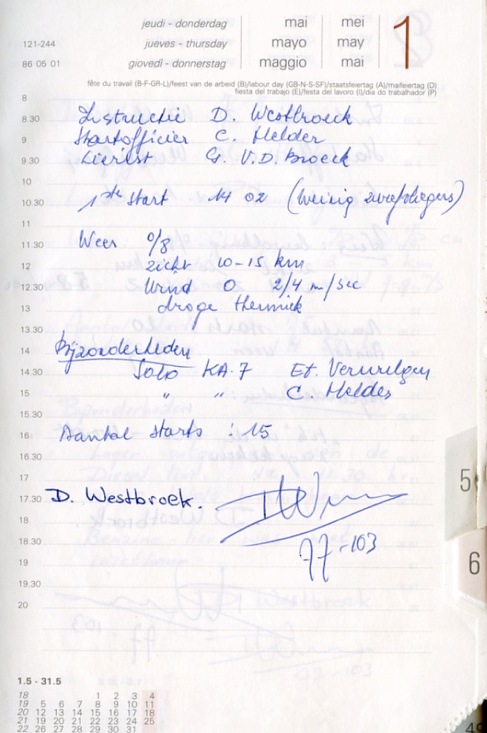 jeudi - donderdag mai mei 1
121-244 jueves - thursday mayo may
86 05 01 giovedi - donnerstag maggio mai
fête du travail (B-F-GR-L)/feest van de arbeid (B)/labour day (GB-N-S-SF)/staatsfeiertag (A)/maifeiertag (D)
fiesta del trabajo (E)/festa del lavoro (I)/dia do trabalhador (P)
8
8.30 Instructie D. Westbroeck
9 Startofficier C. Helder
9.30 Lierist G. V.D. Broeck
10
10.30 1ste Start 14 02 (Weinig zweefvliegers)
11
11.30 Weer 0/8
12 zicht 10-15 km
12.30 Wind O 2/4 m/sec
13 droge thermiek
13.30
14 Bijzonderheden
14.30 Solo KA.7 Et.
15 " " C. Helder
15.30
16 Aantal starts : 15
16.30
17
17.30 D. Westbroek.
18
18.30 77-103
19
19.30
20
5
6
1.5 - 31.5
18 1 2 3 4
19 5 6 7 8 9 10 11
20 12 13 14 15 16 17 18
21 19 20 21 22 23 24 25
22 26 27 28 29 30 31